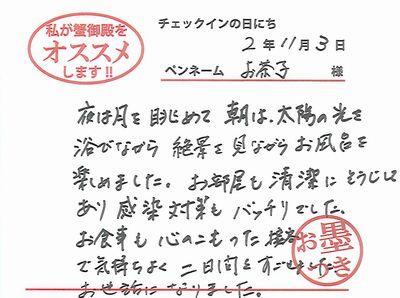 私が蟹御殿を
オススメ
します!!
チェックインの日にち
2年11月3日
ペンネーム お茶子 様
夜は月を眺めて 朝は、太陽の光を
浴びながら 絶景を見ながらお風呂を
楽しめました。お部屋も清潔にそうじして
あり 感染対策も バッチリでした。
お食事も 心のこもった接客
で気持ちよく 二日間をすごせました
お世話になりました。
お墨つき